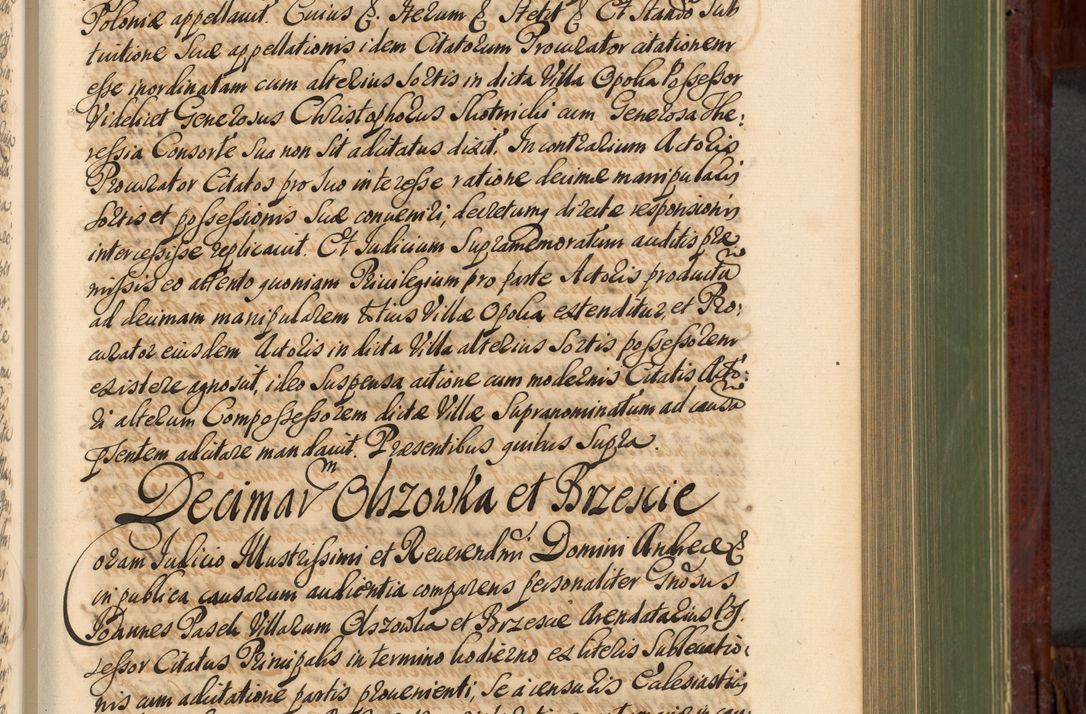 Poloniæ appellavit. Cuius &. Iterum & Stetit & Et stando sub
tuitione suæ appellationis idem Citatorum Procurator citationem
esse inordinatam cum alterius sortis in dicta Villa Opolia Possessor
Videlicet Generosus Christophorus cum Generosa The:
ressia Consorte sua non sit adcitatus dixit. In contrarium Actoris
Procurator Citatos pro suo interesse ratione decimæ manipularis
sortis et possessionis suæ conveniri, decretumq directæ responsionis
intercessisse replicavit. Et Iudicium Supramemoratum auditis præ
missis eo attento quoniam Privilegium pro parte Actoris productū
ad decimam manipularem totius Villæ Opolia extenditur, et Pro:
curator eiusdem Actoris in dicta Villa alterius sortis possessorem
existere agnovit, ideo suspensa actione cum modernis Citatis Acto:
ri alterum Compossessorem dictæ Villæ Supranominatum ad causā
psentem adcitare mandavit. Præsentibus quibus supra.
Decimarum Olszowka et Brzescie
Coram Iudicio Illustrissimi et Reverendmi Domini Andreæ &
in publica causarum audientia comparens personaliter Gnosus
Joannes Pasek Villarum Olszowka et Brzescie Arendatarius Pos
sessor Citatus Principalis in termino hodierno ex literis sublevatio:
nis cum adcitatione partis provenienti, se a censuris Ecclesiasticis